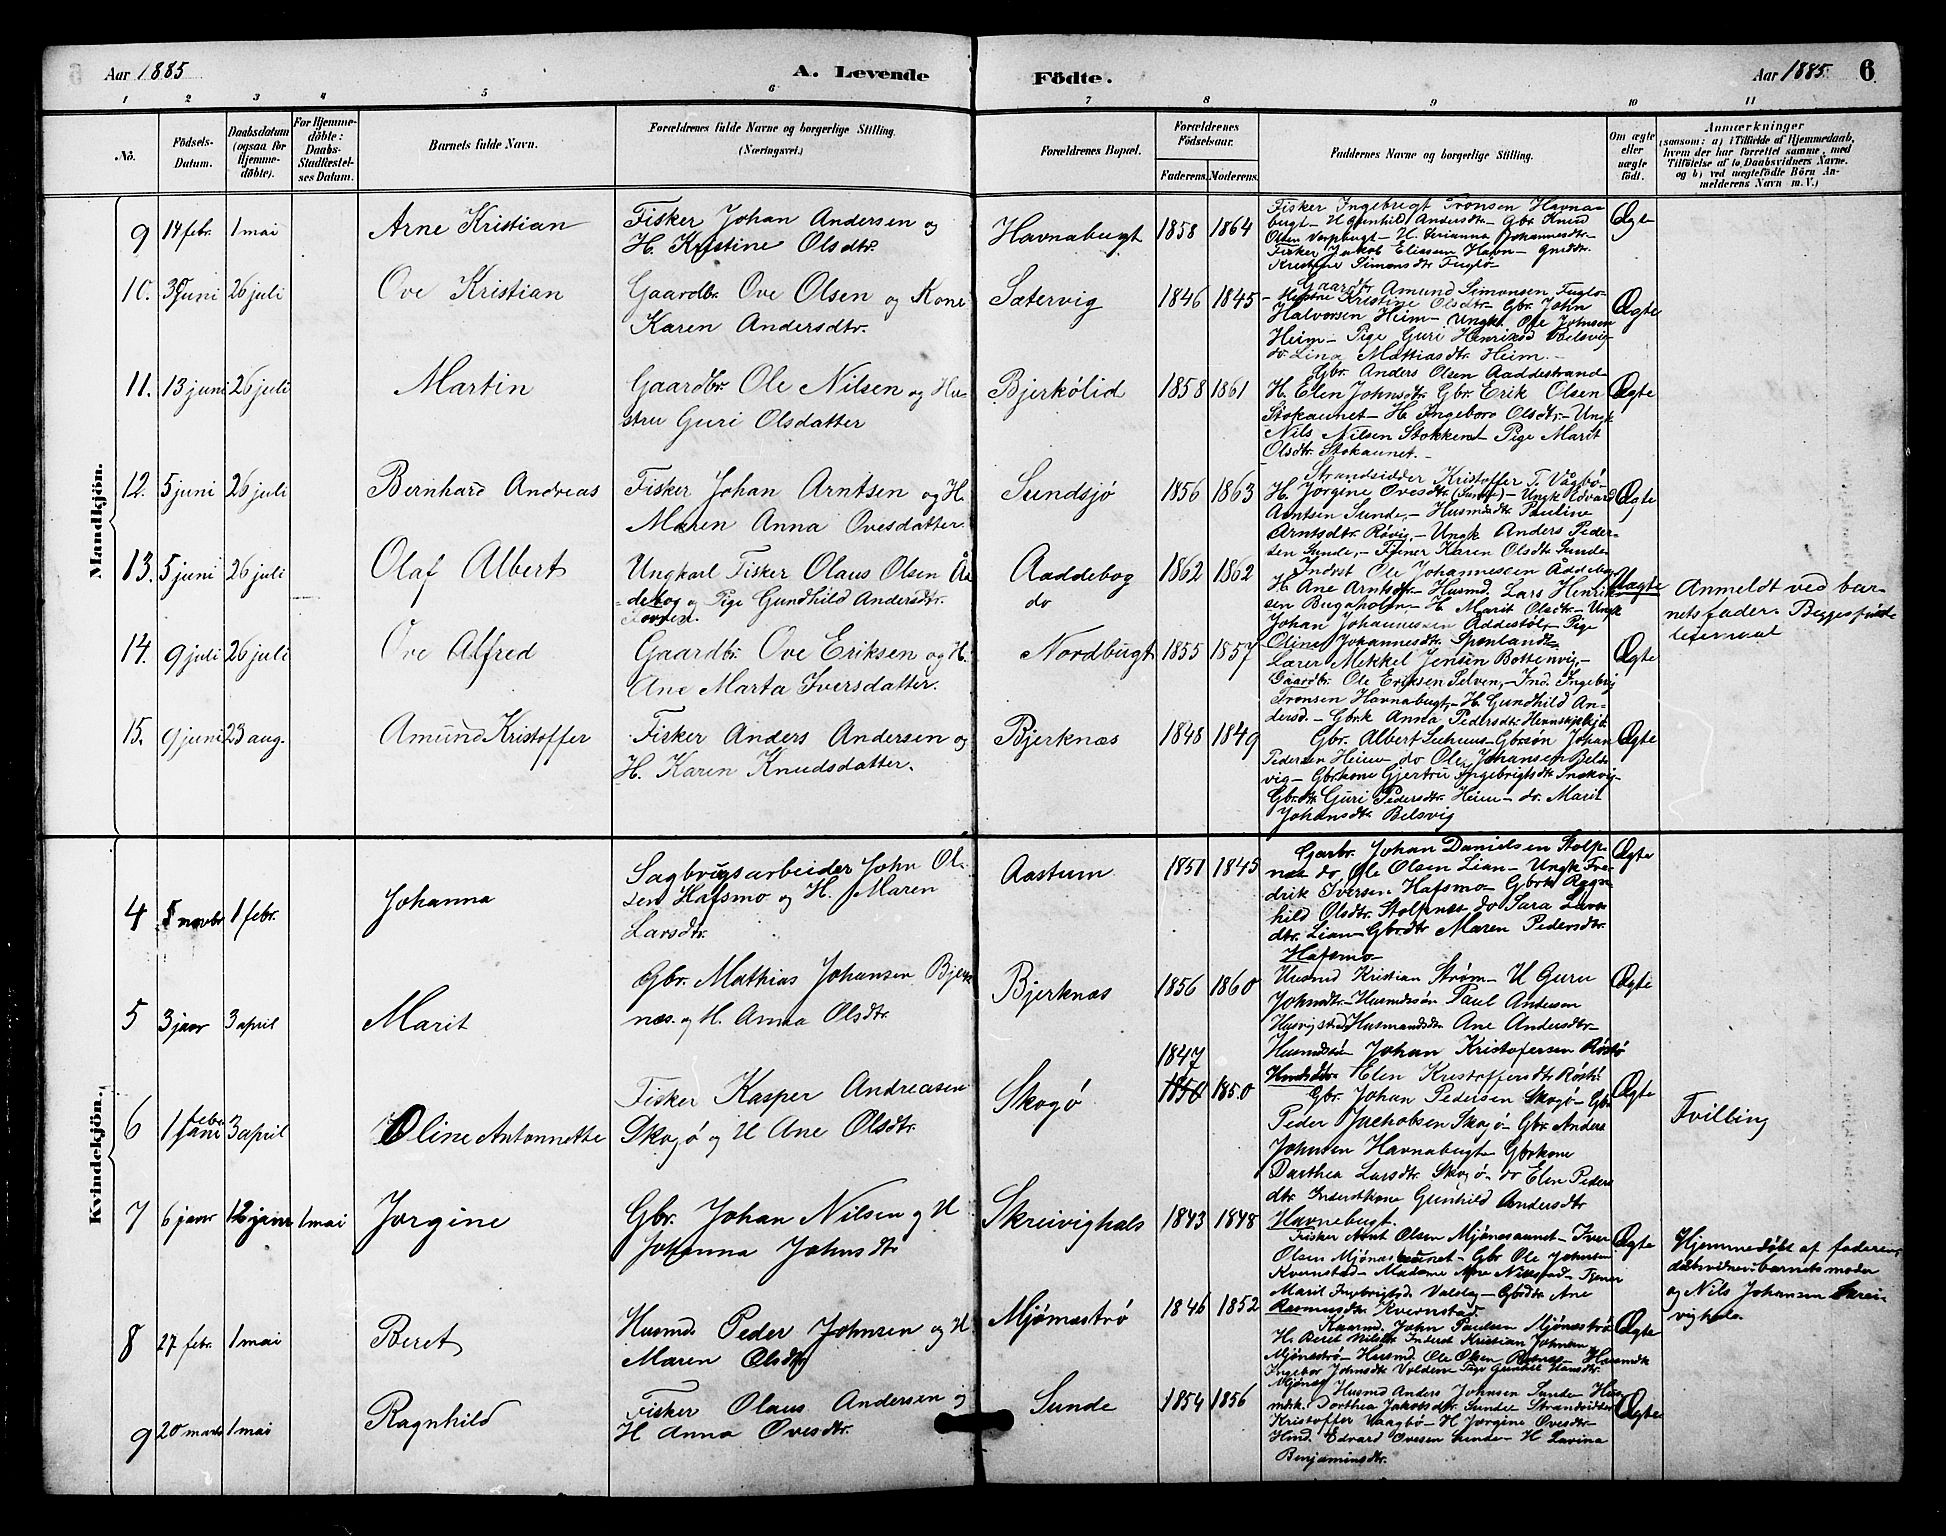 Aar 1885
A. Levende
Födte.
Aar 1885
6
1 2 3 4 5 6 7 8 9 10 11
No.
Födsels-
Datum.
Daabsdatum
(ogsaa for
Hjemme-
döbte).
For Hjemme-
döbte:
Daabs-
Stadfæstel-
ses Datum.
Barnets fulde Navn.
Forældrenes fulde Navne og borgerlige Stilling.
(Næringsvei.)
Forældrenes Bopæl.
Forældrenes
Födselsaar.
Faderens. Moderens.
Faddernes Navne og borgerlige Stilling.
Om ægte
eller
uægte
født.
Anmærkninger
(saasom: a) i Tilfælde af Hjemmedaab,
hvem der har forrettet samme, med
Tilföielse af to Daabsvidners Navne.
og b) ved uægtefödte Börn An-
melderens Navn m.V.)
Mandkjön.
9 14 febr. 1 mai
Arne Kristian
Fisker Johan Andersen og
H. Kristine Olsdtr.
Havnabugt 1858 1864
Fisker Ingebrigt Tronsen Havna-
bugt - H Gunhild Andersdtr - Gbr Knud
Olsen - H. Johannesdtr -
Fisker Jakob Eliassen Havn -
Kristine Simonsdtr Fuglø -
Ægte
10. 3 Juni 26 juli
Ove Kristian
Gaardbr. Ove Olsen og Kone
Karen Andersdtr.
Sætervig 1846 1845
Gaardbr Amund Simonsen Fuglø -
Kristine Olsdtr - Gbr. John
Halvorsen Heim - Ungk. Ole Johnsen
Heim - Pige Guri Henriksd Belsvig
do Lina Mattiasdtr Heim. -
Ægte
11. 13 juni 26 juli
Martin
Gaardbr. Ole Nilsen og Hu-
stru Guri Olsdatter
Bjerkölid 1858 1861
Gbr. Anders Olsen Aaddestrand
H. Elen Johnsdtr. Gbr. Erik Olsen
Stokaunet - H. Ingebor Olsdtr. - Ungk.
Nils Nilsen Stokkent Pige Marit
Olsdtr. Stokaunet. -
Ægte
12. 5 juni 26 juli
Bernhard Andreas
Fisker Johan Arntsen og H.
Maren Anna Ovesdatter.
Sundsjø 1856 1863
Strandsidder Kristoffer T. Vågbø -
H. Jørgine Ovesdtr (Sunde) - Ungk Edvard
Arntsen Sunde, - Husmdtr Pauline
Arntsdtr. Røvig, - Ungk Anders Peder-
sen Sunde, - Karen Olsdtr Sunde
Ægte
13. 5 juni 26 juli
Olaf Albert
Ungkarl Fisker Olaus Olsen Åd
debog og Pige Gundhild Andersdtr.
Aaddebog
do
1862 1862
Inderst Ole Johannessen Åddebog
H. Ane Arntsdtr - Husmd. Lars Henrik-
sen Bugaholm - H. Marit Olsdtr - Ungk
Johan Johannessen Addestöl, - Pige
Olina Johannesdtr.
Uægte
Anmeldt ved bar-
nets fader. Begges
leiermaal
14. 9 juli 26 juli
Ove Alfred
Gaardbr. Ove Eriksen og H.
Ane Marta Iversdatter.
Nordbugt 1855 1857
Lærer Mekkel Jensen Bottenvig, -
Gaardbr. Ole Eriksen Selven, - Ind. Ingebrig
Tronsen Havnabugt, - H. Gundhild An-
dersd. - Gbrk Anna Pedersdtr
Ægte
15. 9 juni 23 aug.
Amund Kristoffer
Fisker Anders Andersen og
H. Karen Knudsdatter.
Bjerknæs 1848 1849
Gbr. Albert - Gbrsøn Johan
Pedersen Heim - do Ole Johansen Bels-
vig - Gbrkone Gjertru Ingebrigtsdtr Snekvig
Gbr.dtr Guri Pedersdtr. Heim - do. Marit
Johansdtr. Belsvig
Ægte
Kvindekjön.
4 novbr 1 febr.
Johanna
Sagbrugsarbeider John Ol-
sen Hafsmo og H. Maren
Larsdtr.
Aastum 1851 1845
Gaarbr. Johan Danielsen Stolp-
næs do Ole Olsen Lian - Ungk Fre-
drik Iversen Hafsmo - Gbrk Ragn-
hild Olsdtr. Stolpnæs do Sara Lars-
dtr. Lian - Gbr.dtr Maren Pedersdtr.
Hafsmo -
Ægte
5 3 janr 3 april
Marit
Gbr. Mathias Johansen Bjerk
næs. og H. Anna Olsdtr.
Bjerknæs 1856 1860
Husmd Kristian Strøm - H Guru
Johnsdtr - Husmdssön Paul Andersen
Husmandsdtr Ane Andersdtr -
Husmdssön Johan Kristofersen Röstö
Elen Kristoffersdtr Röstö
Ægte
6 1 febr 3 april
Oline Antonnette
Fisker Kasper Andreasen
Skogö og H Ane Olsdtr.
Skogö 1847 1850 1850
Gbr. Johan Pedersen Skogö - Gbr
Peder Jachobsen Skogö - Gbr Anders
Johnsen Havnabugt Gbrkone
Darthea Larsdtr. Skogö - do Elen Peders
dtr. Inderstkone Gunhild Andersdtr
Havnebugt.
Ægte
Tvilling
7 6 janr 12 janr 1 mai
Jørgine
Gbr. Johan Nilsen og H
Johanna Johnsdtr
Skreivighals 1843 1848
Fisker Arnt Olsen Mjönesaunet - Iver
Olsen Mjönesaunet - Gbr Ole Johnsen
Kvernstad - Madame
Marit Ingbrigtsd. Valslag - Gbrdtr Ane
Rasmusdtr Kvernstad.
Ægte
Hjemmedöbt af faderen,
barnets moder
og Nils Johansen Skrei-
vighals.
8 27 febr. 1 mai
Beret
Husmd. Peder Johnsen og H
Maren Olsdtr
Mjönæströ 1846 1852
Kaarmd. John Paulsen Mjönæströ
H. Beret Nilsdtr Inderst Kristian Johnsen
Mjönæströ - Husmd. Ole Olsen
Ingebor Johnsdtr Pige Gunhild Hansdtr.
Mjönæs
Ægte
9 20 marts 1 mai
Ragnhild
Fisker Olaus Andersen og
H Anna Ovesdtr.
Sunde 1854 1856
Husmd Anders Johnsen Sunde Hus-
mdk. Dorthea Jakobsdtr Sunde Strandsidder
Kristoffer Vaagbö - H Jørgine Ovesdtr -
Hmd. Edvard Ovesen Sunde - H Lavina
Benjaminsdtr.
Ægte